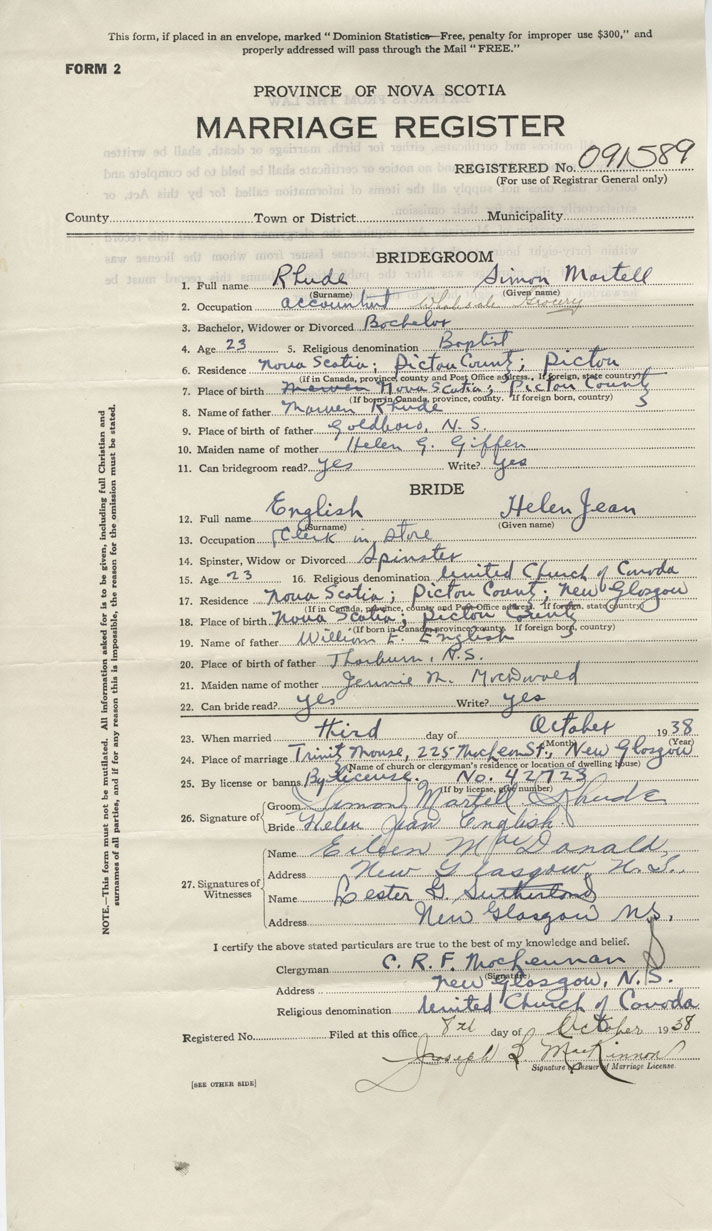 This form, if placed in an envelope, marked "Dominion Statistics—Free, penalty for improper use $300," and
properly addressed will pass through the Mail "FREE."
FORM 2
PROVINCE OF NOVA SCOTIA
MARRIAGE REGISTER
REGISTERED No. 091589
(For use of Registrar General only)
County Town or District Municipality
BRIDEGROOM
1. Full name Rhude Simon Martell
(Surname) (Given name)
2. Occupation accountant Wholesale Grocery
3. Bachelor, Widower or Divorced Bachelor
4. Age 23 5. Religious denomination Baptist
6. Residence Nova Scotia; Pictou County; Pictou
(If in Canada, province, county and Post Office address. If foreign, state country)
7. Place of birth Nova Scotia; Pictou County
(If born in Canada, province, county. If foreign born, country)
8. Name of father Marven Rhude
9. Place of birth of father Goldboro, N.S.
10. Maiden name of mother Helen G. Giffen
11. Can bridegroom read? yes Write? yes
BRIDE
12. Full name English Helen Jean
(Surname) (Given name)
13. Occupation Clerk in store
14. Spinster, Widow or Divorced Spinster
15. Age 23 16. Religious denomination United Church of Canada
17. Residence Nova Scotia; Pictou County; New Glasgow
(If in Canada, province, county and Post Office address. If foreign, state country)
18. Place of birth Nova Scotia; Pictou County
(If born in Canada, province, county. If foreign born, country)
19. Name of father William E. English
20. Place of birth of father Thorburn, N.S.
21. Maiden name of mother Jennie M. MacDonald
22. Can bride read? yes Write? yes
23. When married third day of October 1938
(Month) (Year)
24. Place of marriage 225 St., New Glasgow
(Name of church or clergyman's residence or location of dwelling house)
25. By license or banns By license. No. 42723
(If by license, give number)
26. Signature of
Groom Simon Martell Rhude
Bride Helen Jean English
27. Signatures of Witnesses
Name Eileen MacDonald,
Address New Glasgow, N.S.
Name Lester G. Sutherland
Address New Glasgow N.S.
I certify the above stated particulars are true to the best of my knowledge and belief.
Clergyman C. R. F. MacLennan
(Signature)
Address New Glasgow, N.S.
Religious denomination United Church of Canada
Registered No. Filed at this office day of October 1938
Joseph MacKinnon
Signature of Issuer of Marriage License.
[SEE OTHER SIDE]
NOTE.—This form must not be mutilated. All information asked for is to be given, including full Christian and
surnames of all parties, and if for any reason this is impossible, the reason for the omission must be stated.